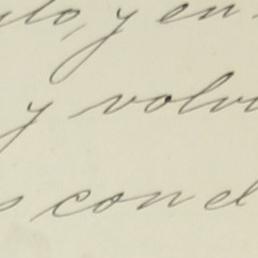 y en
y volv
s con el